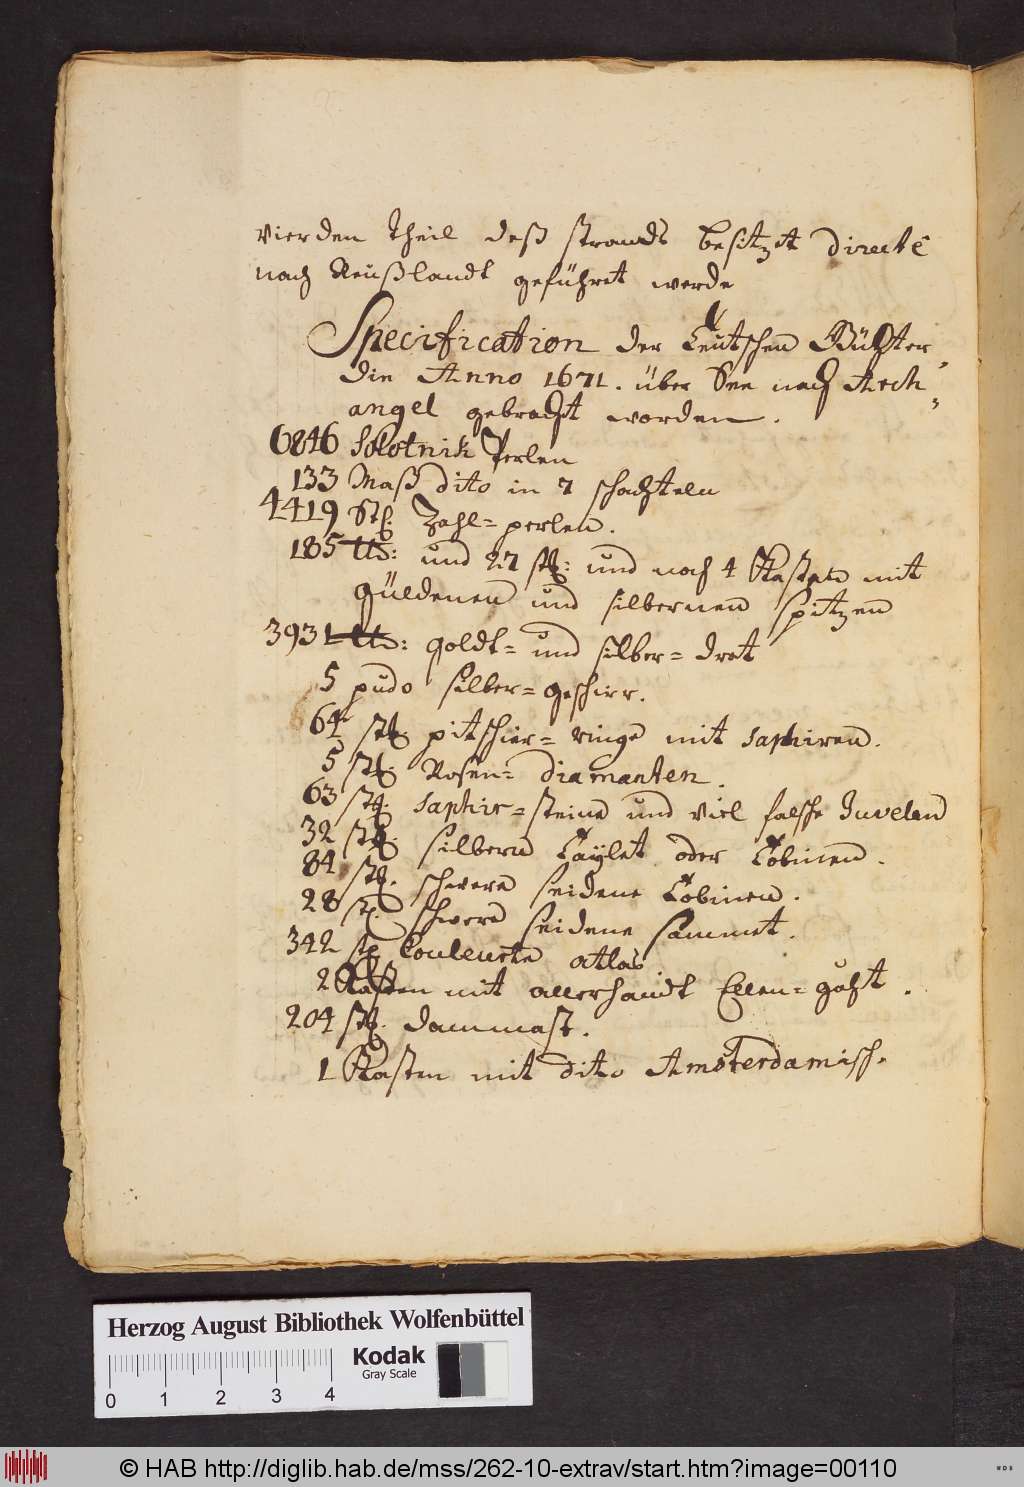 vierden theil deß strands besitzt directè
nach Reußlandt geführet werde
Specification der Teutschen Gühter,
die Anno 1671. über See nach Arch=
angel gebracht worden.
6846 Solotnik Perlen
133 Maß dito in 7 schachteln
4419 Stk. Zahl=perlen.
185 ℔: und 27 stk: und noch 4 Kasten mit
güldenen und silbernen spitzen
3931 ℔: goldt= und silber=drat
5 pudo silber=geschirr.
64 stk. pitschier=ringe mit saphiren.
5 stk. Rosen=diamanten.
63 stk. saphir=steine und viel falsche Juvelen
32 stk. silbern Taylet oder Tobinen.
84 stk. schwere seidene Tobinen.
28 stk. schwere seidene sammet.
342 stk Couleurte atlas
2 Kasten mit allerhandt Ellen=guht.
204 stk. dammast.
1 Kasten mit dito Amsterdamisch.
Herzog August Bibliothek Wolfenbüttel
Kodak
Gray Scale
0 1 2 3 4
© HAB http://diglib.hab.de/mss/262-10-extrav/start.htm?image=00110
WDB